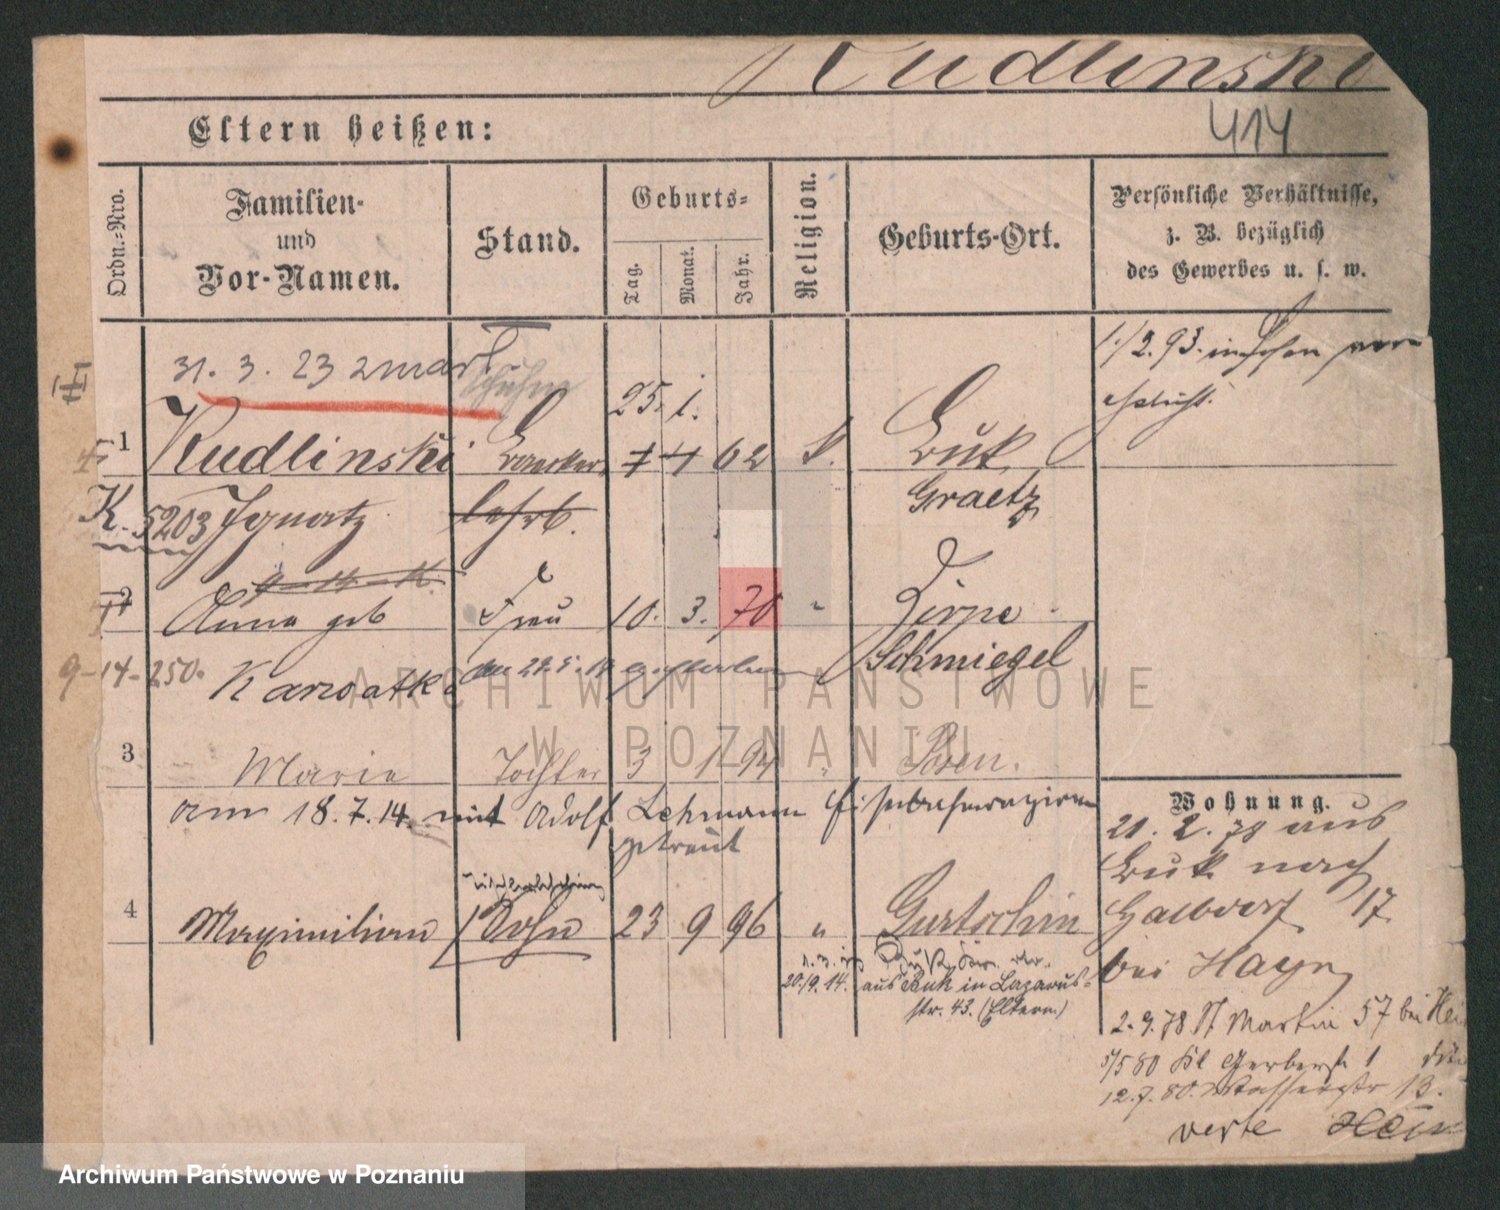 Kudlinski
414
Eltern heißen:
Ordn.-Nro.
Familien-
und
Vor-Namen.
Stand.
Geburts-
Tag.
Monat.
Jahr.
Religion.
Geburts-Ort.
Persönliche Verhältnisse,
z. B. bezüglich
des Gewerbes u. s. w.
31. 3. 23
1./2.93. in Posen ver
ehelicht.
25. 1.
1 Kudlinski 7 4 62 k. Buk
K. 5203 Ignatz Graetz
2 Anna geb Frau 10. 3. 70 "
9-14-250. Schmiegel
3 Marie Tochter 3 1 94 " Posen.
am 18.7.14. mit Adolf Lehmann
getraut
4 Maximilian Sohn 23 9 96 " Gurtschin
20/9.14. aus Buk in Lazarus-
str. 43. (Eltern)
Wohnung.
21. 2. 78 aus
Buk nach
Halbdorf 17
bei Hayn
2.9.78 St Martin 57 bei
5/5 80 Kl Gerberstr 1
12.7.80. Wasserstr 13.
verte
ARCHIWUM PAŃSTWOWE
W POZNANIU
Archiwum Państwowe w Poznaniu